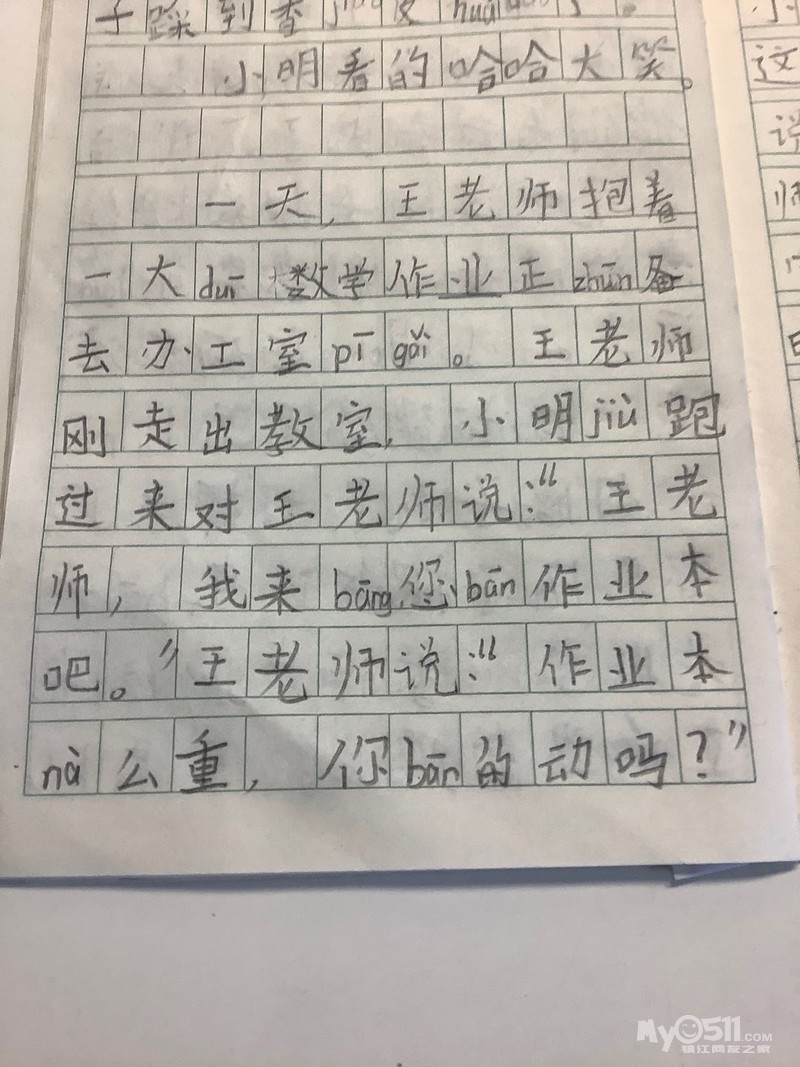 子踩到香jiāo皮huá
小明看的哈哈大笑。
一天，王老师抱着
一大duī数学作业正zhǔn备
去办工室pī gǎi。王老师
刚走出教室，小明jiù跑
过来对王老师说：“王老
师，我来bāng您bān作业本
吧。”王老师说：“作业本
nà么重，你bān的动吗？”
小
这
说
师
My0511.COM
镇江网友之家